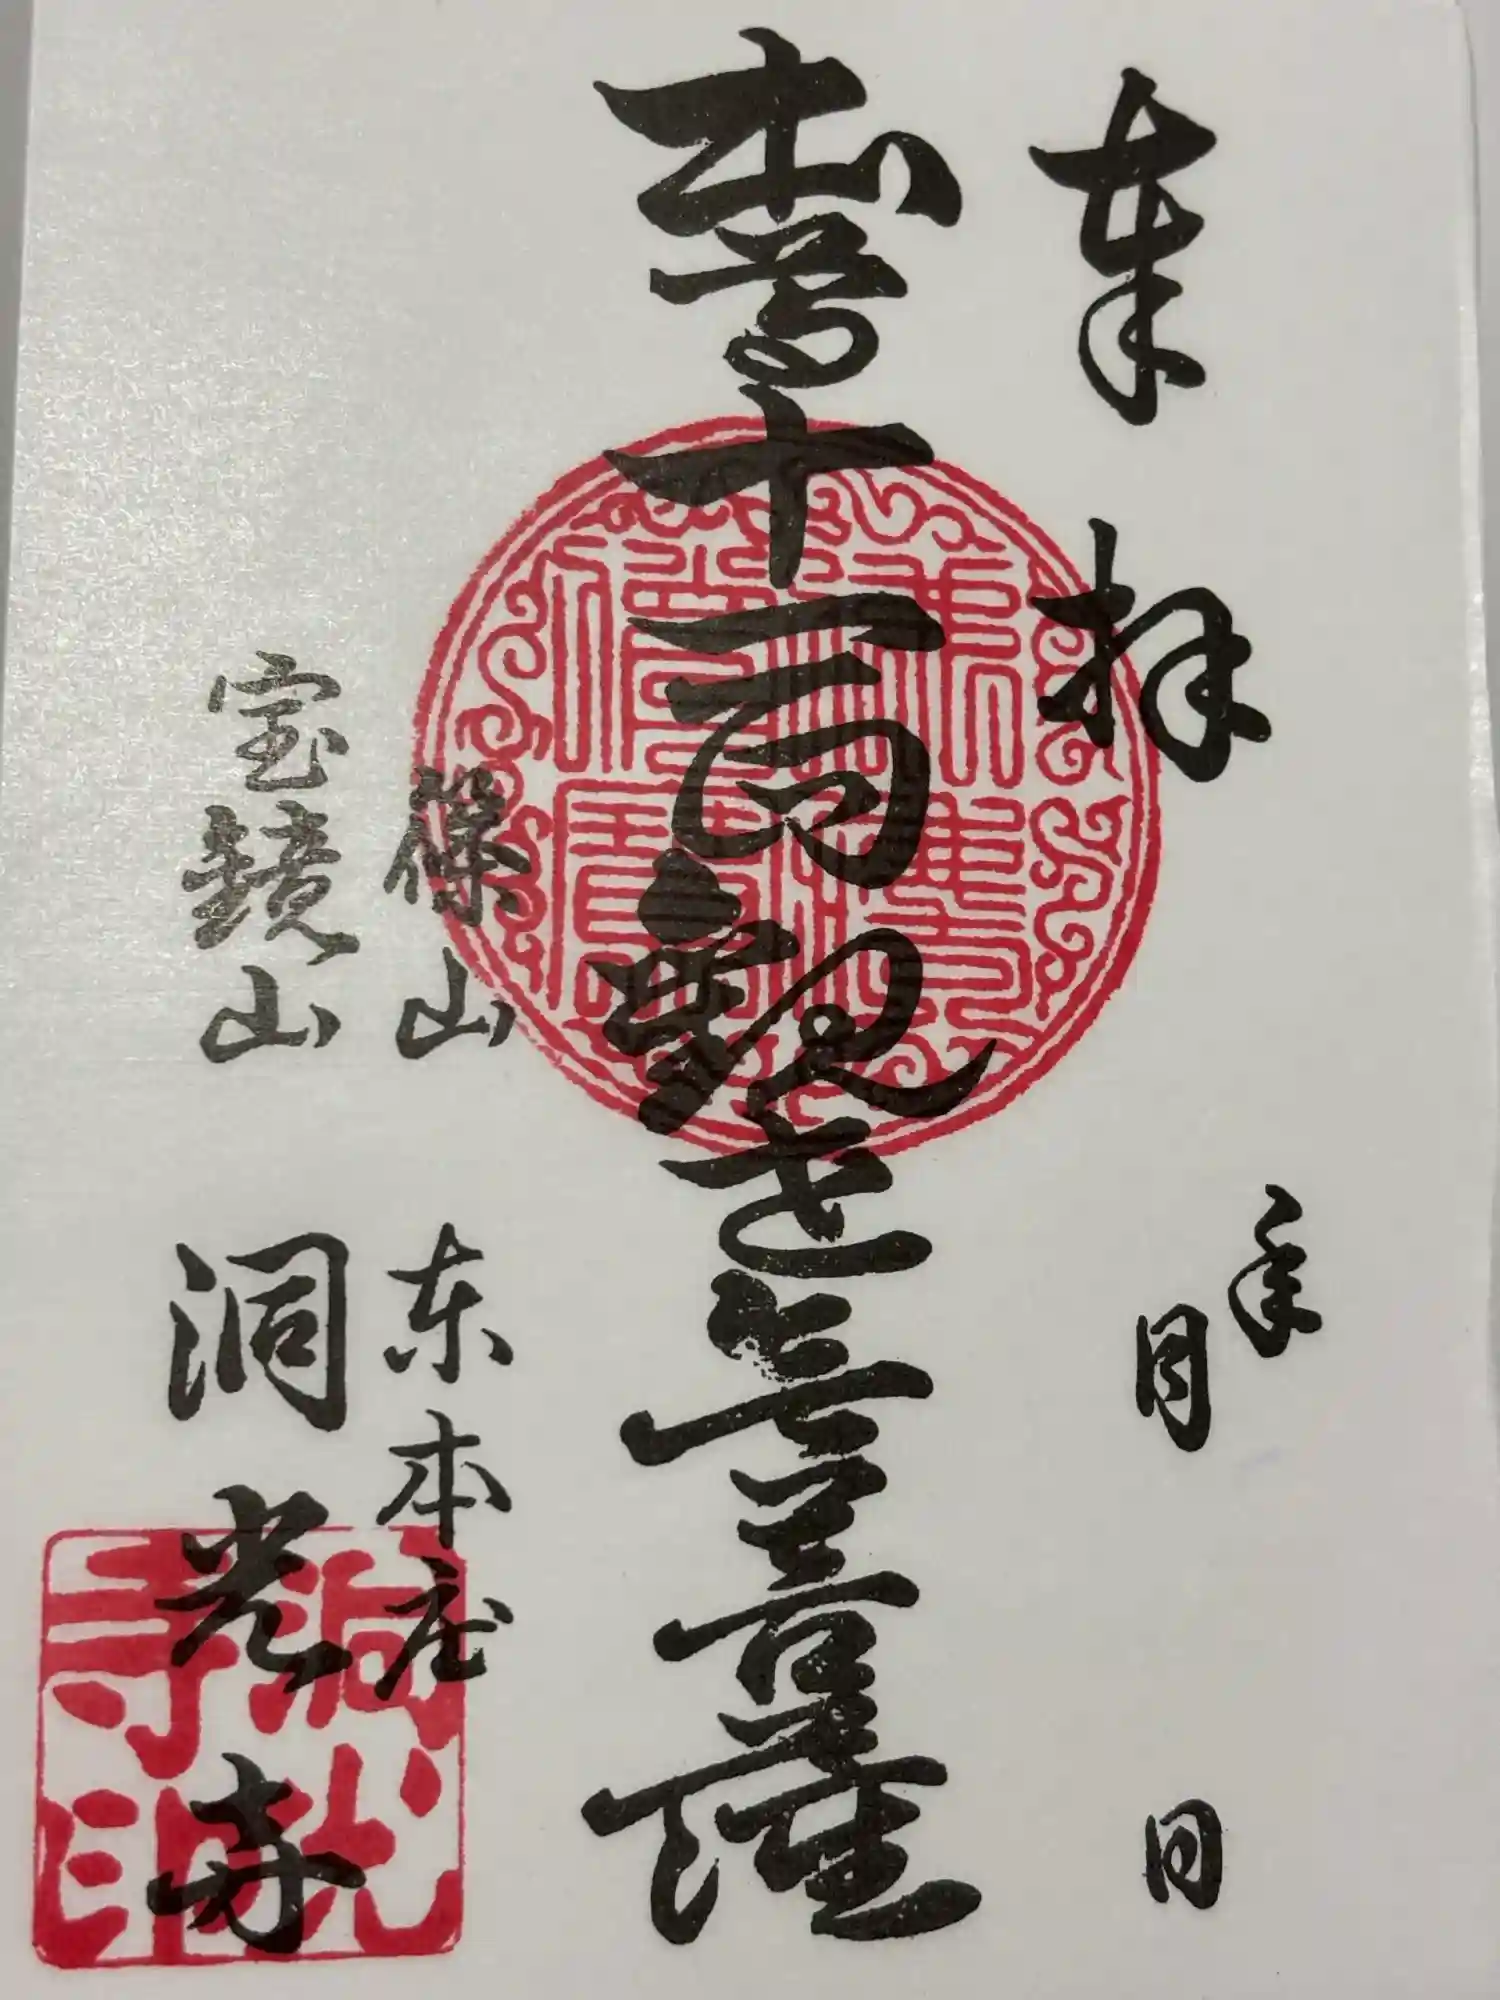 奉拝
年
月
日
本尊十一面観世音菩薩
篠山 東本庄
宝鏡山 洞光寺
洞光寺印